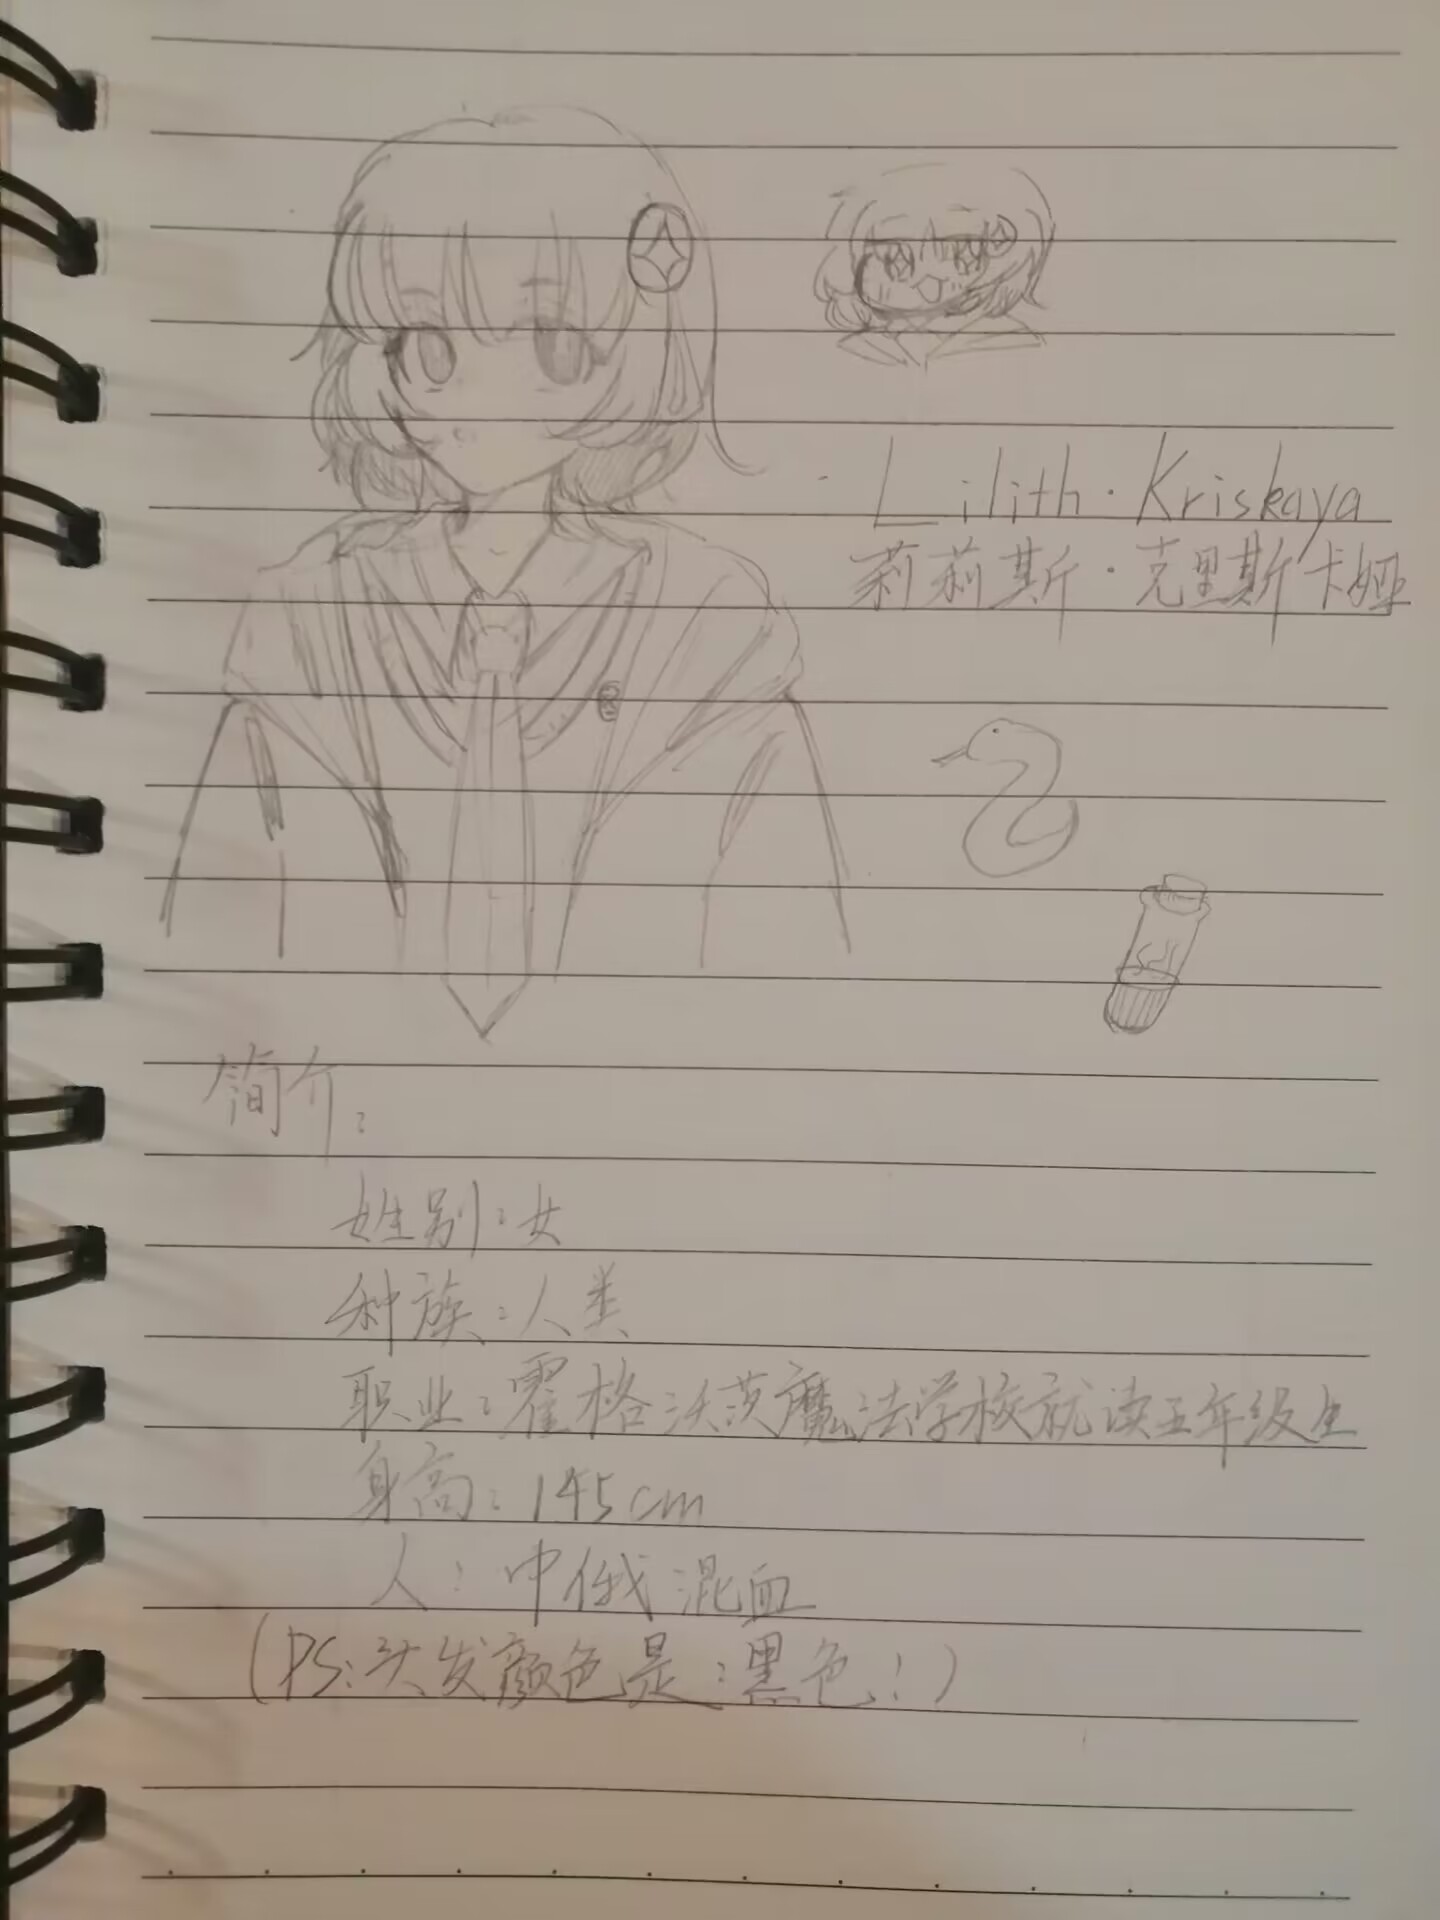 Lilith·Kriskaya
莉莉斯·克里斯卡娅
简介：
姓别：女
种族：人类
职业：霍格沃茨魔法学校就读五年级生
身高：145cm
人：中俄混血
（PS：头发颜色是：黑色！）